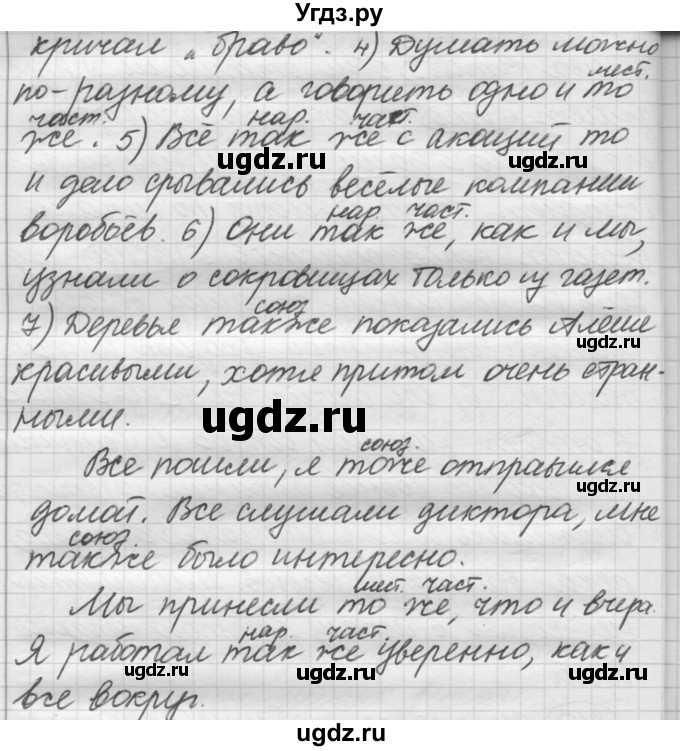 Угдз.ру
кричал „браво“. 4) Думать можно
мест.
по-разному, а говорить одно и то
част. нар. част.
же. 5) Всё так же с акаций то
ugdz.ru
и дело срывались весёлые компании
ugdz.ru
нар. част.
воробьёв. 6) Они так же, как и мы,
узнали о сокровищах только из газет.
союз
7) Деревья также показались Алёше
ugdz.ru
красивыми, хотя притом очень стран-
ugdz.ru
ными.
союз.
Все пошли, я тоже отправился
ugdz.ru
домой. Все слушали диктора, мне
союз.
также было интересно.
мест. част.
Мы принесли то же, что и вчера.
нар. част.
Я работал так же уверенно, как и
ugdz.ru
ugdz.ru
все вокруг.
ugdz.ru